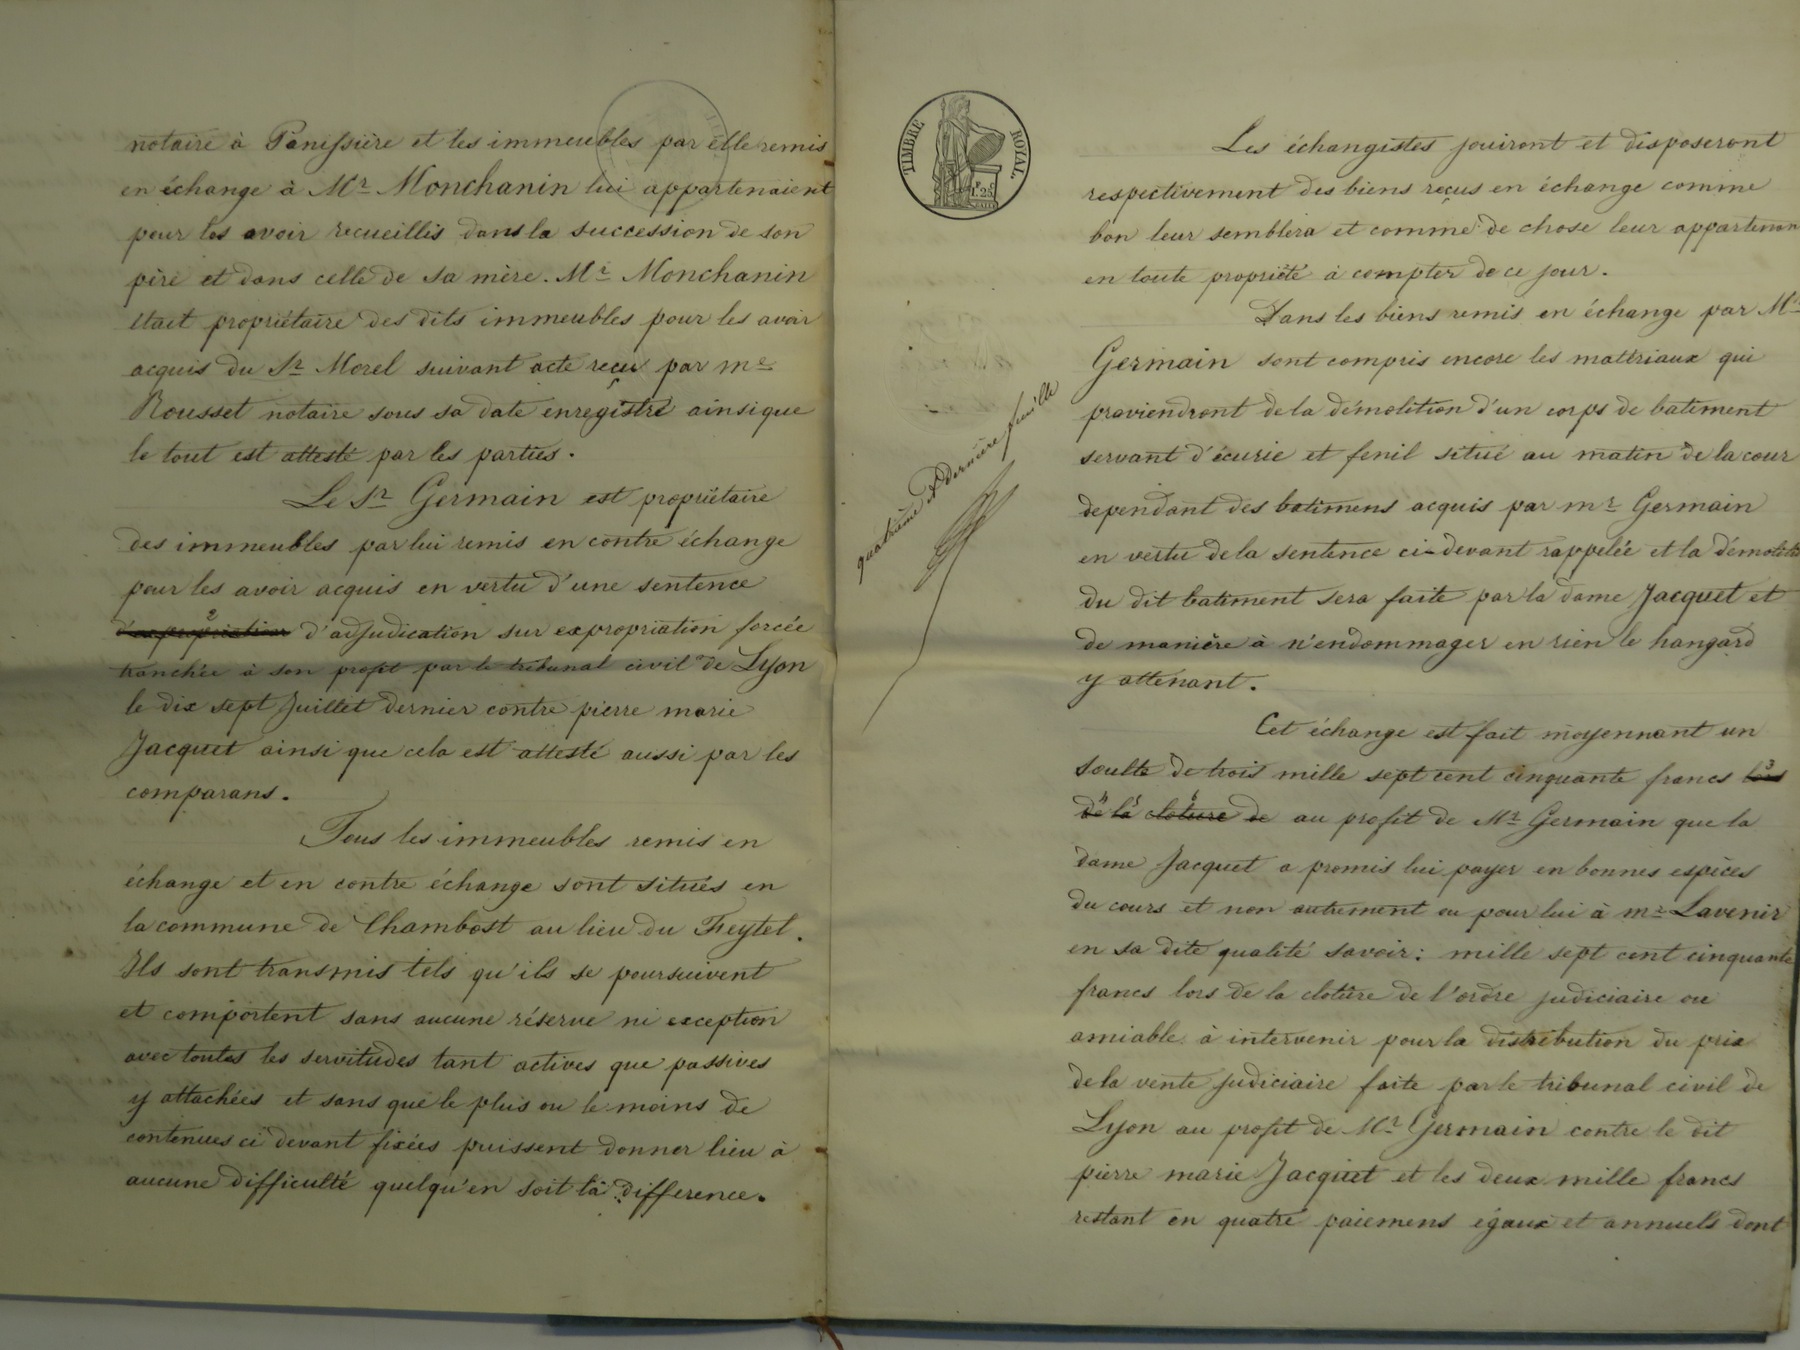 notaire à Panissière et les immeubles par elle remis
en échange à Mr Monchanin lui appartenaient
pour les avoir recueillis dans la succession de son
père et dans celle de sa mère. Mr Monchanin
était propriétaire des dits immeubles pour les avoir
acquis du Sr Morel suivant acte reçu par me
Rousset notaire sous sa date enregistré ainsi que
le tout est attesté par les parties.
Le Sr Germain est propriétaire
des immeubles par lui remis en contre échange
pour les avoir acquis en vertu d'une sentence
d'expropriation d'adjudication sur expropriation forcée
tranchée à son profit par le tribunal civil de Lyon
le dix sept Juillet dernier contre pierre marie
Jacquet ainsi que cela est attesté aussi par les
comparans.
Tous les immeubles remis en
échange et en contre échange sont situés en
la commune de Chambost au lieu du Feytel.
Ils sont transmis tels qu'ils se poursuivent
et comportent sans aucune réserve ni exception
avec toutes les servitudes tant actives que passives
y attachées et sans que le plus ou le moins de
contenues ci devant fixées puissent donner lieu à
aucune difficulté quelqu'en soit la difference.
TIMBRE ROYAL.
1.F 25.C
quatrième et dernière feuille
Les échangistes jouiront et disposeront
respectivement des biens reçus en échange comme
bon leur semblera et comme de chose leur appartenan
en toute propriété à compter de ce jour.
Dans les biens remis en échange par Mr
Germain sont compris encore les matériaux qui
proviendront de la démolition d'un corps de batiment
servant d'écurie et fenil situé au matin de la cour
dependant des batimens acquis par mr Germain
en vertu de la sentence ci-devant rappelée et la démoliti
du dit batiment sera faite par la dame Jacquet et
de manière à n'endommager en rien le hangard
y attenant.
Cet échange est fait moyennant un
soulte de trois mille sept cent cinquante francs lors
de la cloture de au profit de Mr Germain que la
dame Jacquet a promis lui payer en bonnes espèces
du cours et non autrement ou pour lui à mr Lavenir
en sa dite qualité savoir: mille sept cent cinquante
francs lors de la cloture de l'ordre judiciaire ou
amiable à intervenir pour la distribution du prix
de la vente judiciaire faite par le tribunal civil de
Lyon au profit de Mr Germain contre le dit
pierre marie Jacquet et les deux mille francs
restant en quatre paiemens égaux et annuels dont